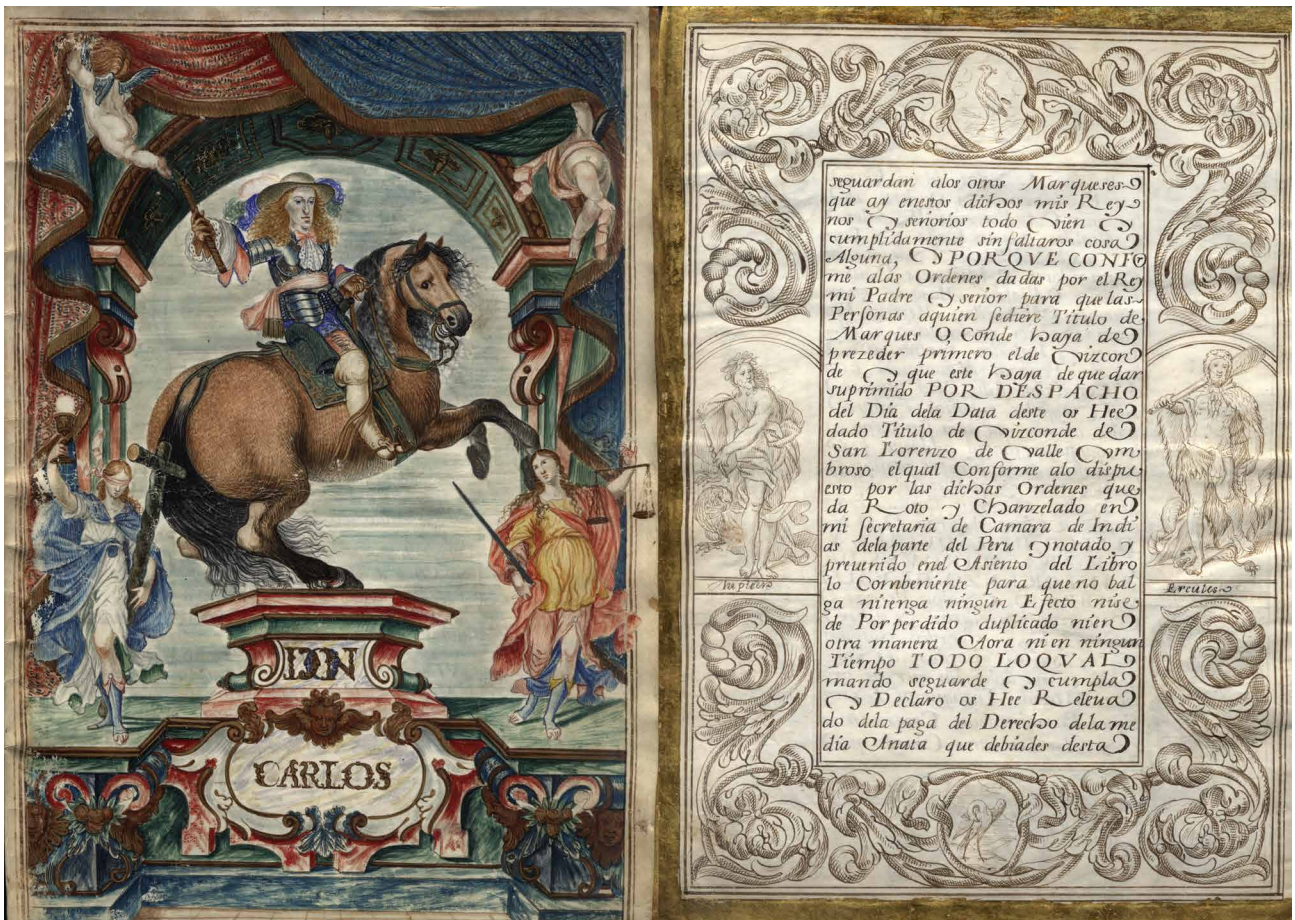 DON
CARLOS
seguardan alos otros Marqueses
que ay enestos dichos mis Rey
nos y señorios todo vien y
cumplidamente sin faltaros cosa
Alguna, y PORQVE CONFO
me alas Ordenes dadas por el Rey
mi Padre y señor para que las
Personas aquien sediere Titulo de
Marques O Conde haya de
prezeder primero elde vizcon
de y que este haya de que dar
suprimido POR DESPACHO
del Dia dela Data deste os Hee
dado Titulo de vizconde de
San Lorenzo de valle vm
broso el qual Conforme alo dispu
esto por las dichas Ordenes que
da Roto y Chanzelado en
mi secretaria de Camara de Indi
as dela parte del Peru y notado y
preuenido enel Asiento del Libro
lo Combeniente para que no bal
ga nitenga ningun Efecto nise
de Por perdido duplicado nien
otra manera Aora ni en ningun
Tiempo TODO LOQVAL
mando seguarde y cumpla
y Declaro os Hee Releua
do dela paga del Derecho dela me
dia Anata que debiades desta
Iupiter
Ercules